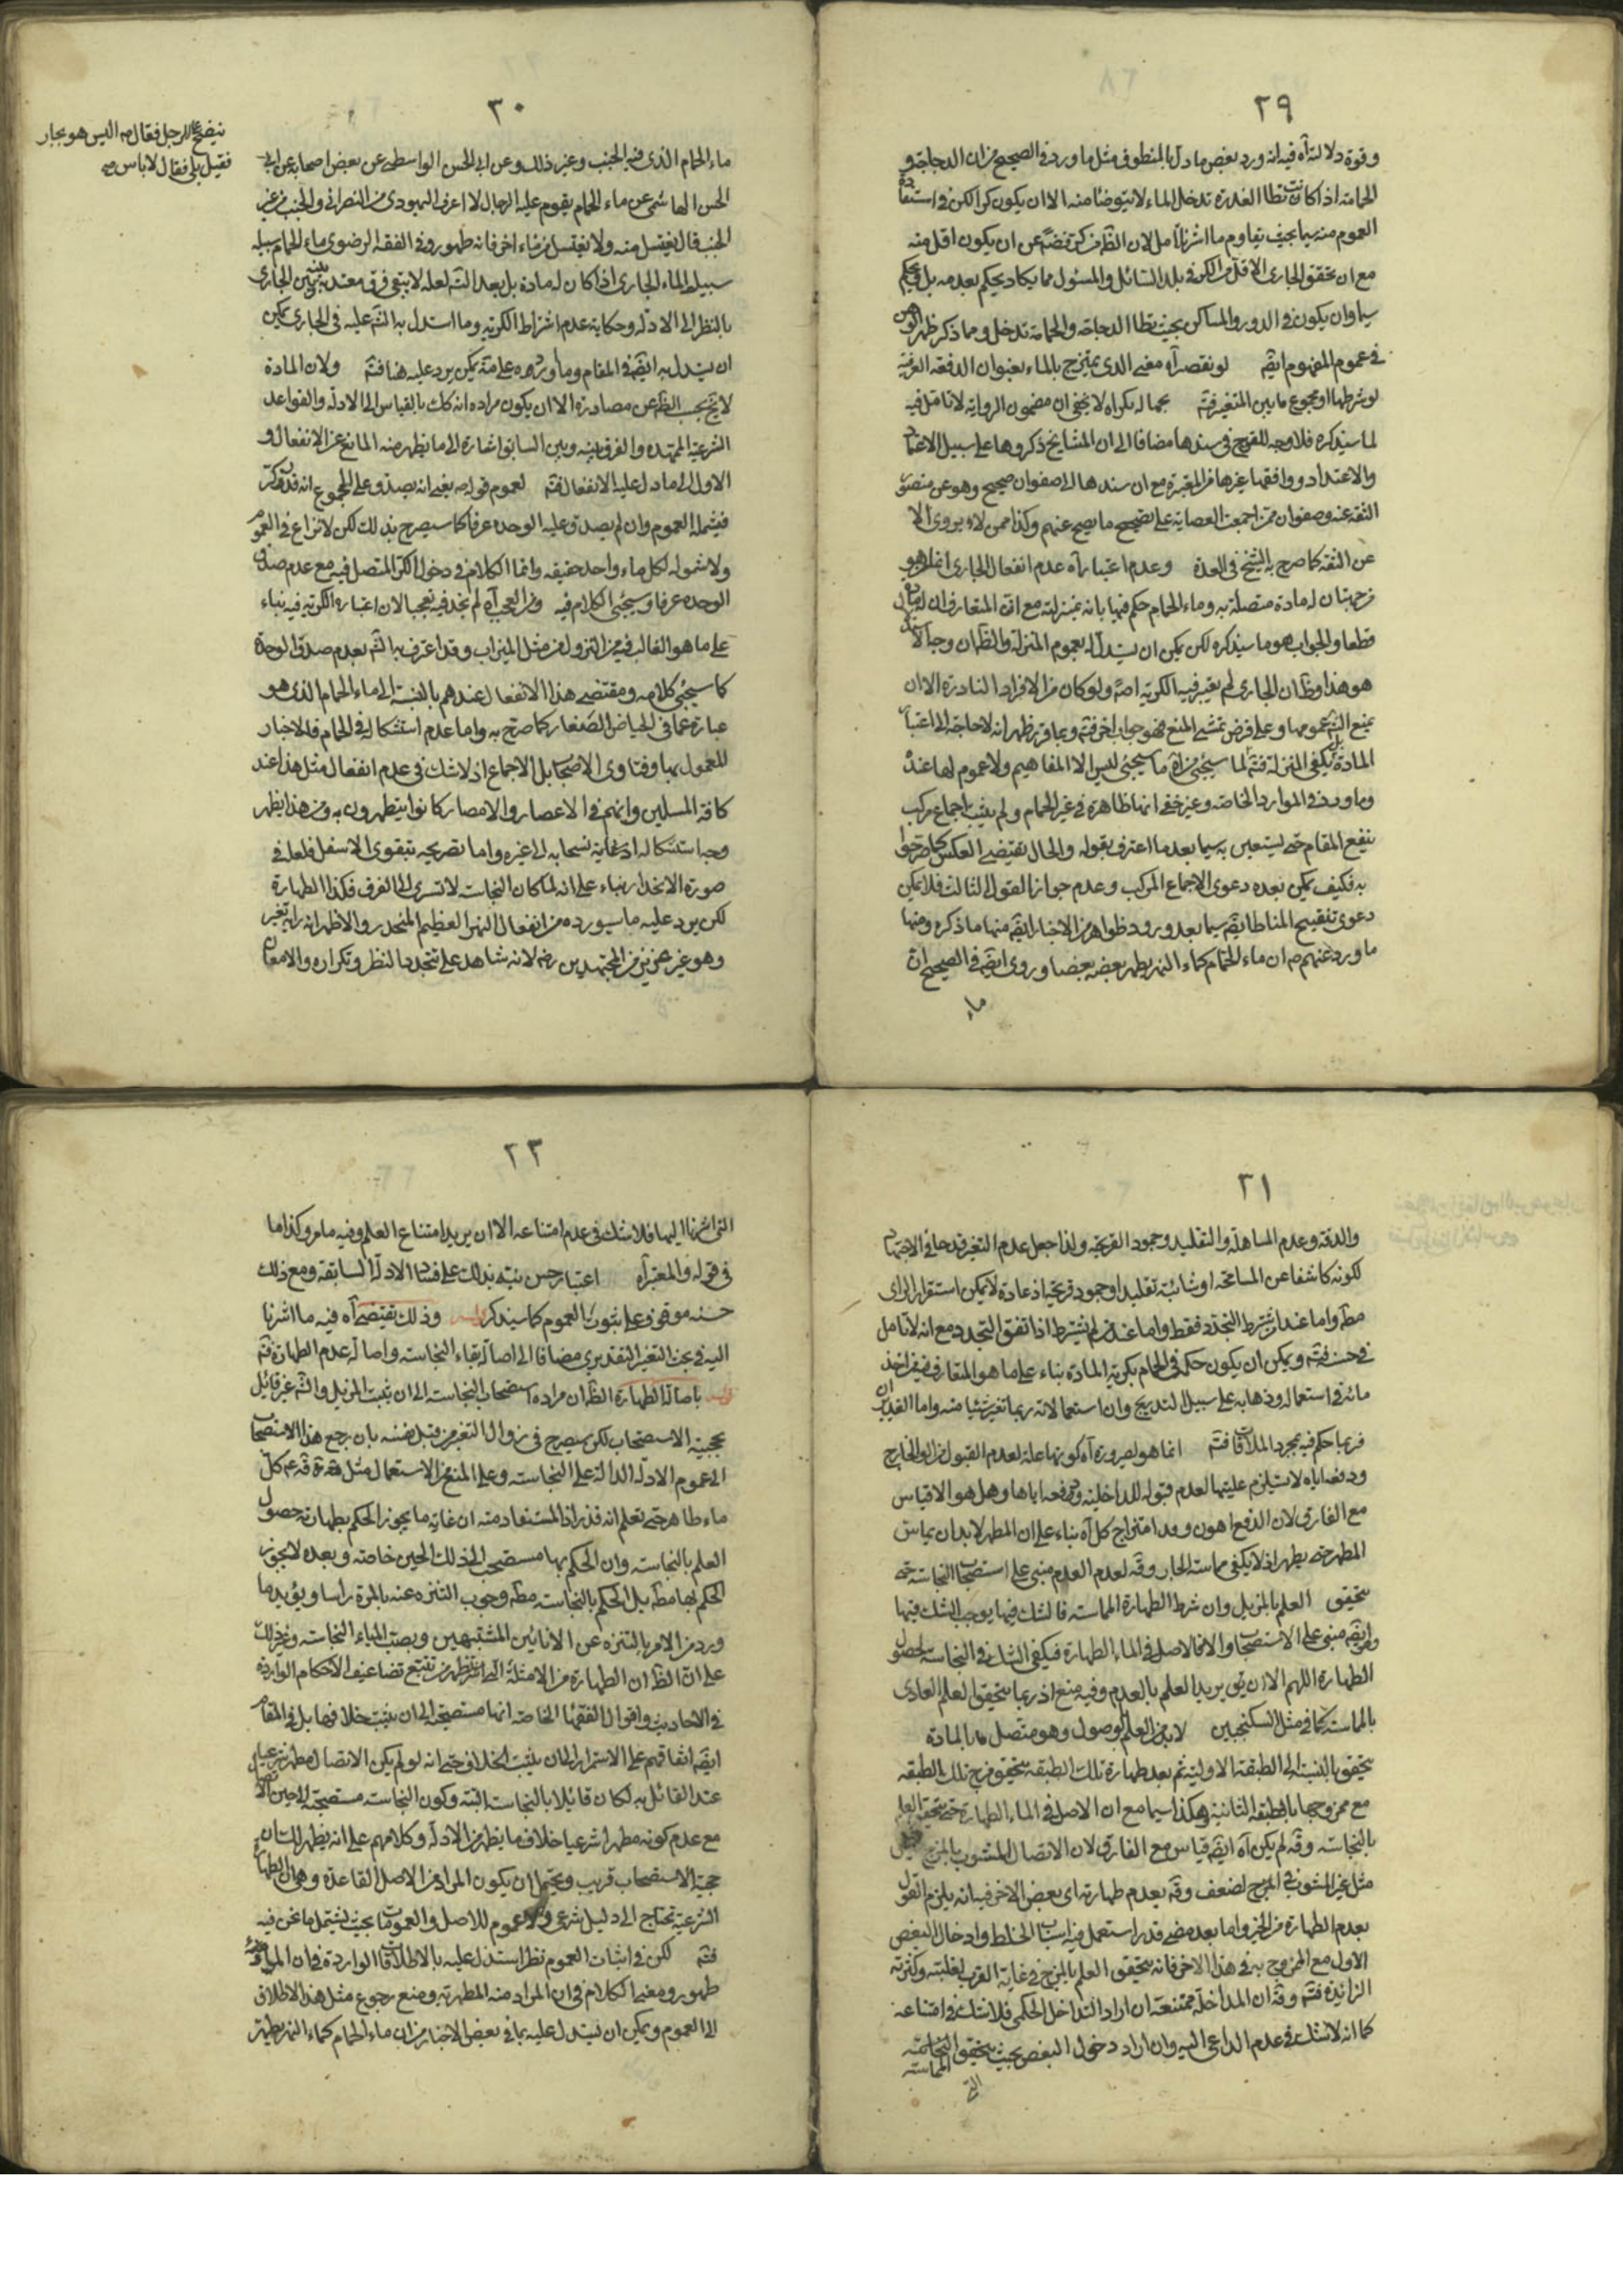 ٢٩
وقوة دلالته آه فيه انه ورد بعض ما دل بالمنطوق مثل ما ورد في الصحيح من ان الدجاجة و
الحمامة اذا كانت تطأ العذرة تدخل الماء لا يتوضأ منه الا ان يكون كرا لكن في استفادة
العموم منه بحيث يقاوم ما اشرنا تامل لان عن ان يكون اقل منه
مع ان تحقق الجاري الاقل من الكر في بلد السائل والمسئول مما يكاد يحكم بعدمه بل يحكم
سيما وان يكون في الدور والمساكن بحيث تطأ الدجاجة والحمامة تدخل ومما ذكر ظهر
في عموم المفهوم ايضا لو نقص آه معنى الذي يمتزج بالماء بعنوان الدفعة العرفية
لو شرطها او مجموع ما بين المتغير فتم بحماله بكراه لا يخفى ان مضمون الرواية لا تامل فيه
لما سيذكره فلا وجه للقدح في سندها مضافا الى ان المشايخ ذكروها على سبيل الاعتماد
والاعتداد ووافقها غيرها من المعتبرة مع ان سندها الى صفوان صحيح وهو عن منصور
الثقة عنه وصفوان ممن اجمعت العصابة على تصحيح ما يصح عنهم وكذا ممن لا يروي الا
عن الثقة كما صرح به الشيخ في العدة وعدم اعتباره آه عدم انفعال الجاري انما هو
من جهة ان له مادة متصلة به وماء الحمام حكم فيها بانه بمنزلته مع ان المتعارف ان له مادة
قطعا والجواب هو ما سيذكره لكن يمكن ان يستدل له بعموم المنزلة والظ ان وجه الاستدلال
هو هذا وظ ان الجاري لم يعتبر فيه الكرية اصلا ولو كان من الافراد النادرة الا ان
يمنع الش عمومها وعلى فرض تمشي المنع فهو جواب اخر فتم وبما قرر ظهر انه لا حاجة الى اعتبار
المادة بل يكفي المنزلة فتم لما سيجئ من آه ما سيجئ ليس الا المفاهيم ولا عموم لها عنده
وما ورد في الموارد الخاصة وغير خفي انها ظاهرة في غير الحمام ولم يثبت اجماع مركب
ينفع المقام حتى يستعين به سيما بعد ما اعترف بقوله والحال يقتضي العكس كما صرحوا
به فكيف يمكن بعده دعوى الاجماع المركب وعدم جواز القول الثالث فلا يمكن
دعوى تنقيح المناط ايضا سيما بعد ورود ظواهر من الاخبار ايضا منها ما ذكره ومنها
ما ورد عنهم ع ان ماء الحمام كماء النهر يطهر بعضه بعضا وروى ايضا في الصحيح ان
ماء
٣٠
ماء الحمام الذي فيه الجنب وغير ذلك وعن ابي الحسن الواسطي عن بعض اصحابه عن ابي
الحسن الهاشمي عن ماء الحمام يقوم عليه الرجال لا اعرف اليهودي من النصراني والجنب من غير
الجنب قال يغتسل منه ولا يغتسل من ماء اخر فانه طهور وفي الفقه الرضوي ماء الحمام سبيله
سبيل الماء الجاري اذا كان له مادة بل بعد التامل لعله لا يبقى فرق معتد به بينه وبين الجاري
بالنظر الى الادلة وحكاية عدم اشتراط الكرية وما استدل به الش عليه في الجاري يمكن
ان يستدل به ايضا في المقام وما اورده عليه ثمة يمكن يرد عليه هنا فتم ولان المادة
لا تخ بحسب الظ عن مصادرة الا ان يكون مراده انه كك بالقياس الى الادلة والقواعد
الشرعية الممهدة والفرق بينه وبين السابق اشارة الى ما يظهر منه المانع عن الانفعال و
الاول الى ما دل عليه الانفعال فتم لعموم قوله ع يعني انه يصدق على المجموع انه قدر كر
فيشمله العموم وان لم يصدق عليه الوحدة عرفا كما سيصرح بذلك لكن لا نزاع في العموم
ولا شموله لكل ماء واحد حقيقة وانما الكلام في دخول الكر المتصل فيه مع عدم صدق
الوحدة عرفا وسيجئ الكلام فيه ومن العجب آه لم نجد فيه تعجبا لان اعتباره الكرية فيه بناء
على ما هو الغالب فيه من النزول من مثل الميزاب وقد اعترف به الش بعدم صدق الوحدة
كما سيجئ كلامه ومقتضى هذا الانفعال عندهم بالنسبة الى ماء الحمام الذي هو
عبارة عما في الحياض الصغار كما صرح به واما عدم استشكاله في الحمام فللاخبار
المعمول بها وفتاوى الاصحاب بل الاجماع اذ لا شك في عدم انفعال مثل هذا عند
كافة المسلمين وانهم في الاعصار والامصار كانوا يتطهرون به ومن هذا يظهر
وجه استشكاله اذ غاية نسحابه الى غيره واما تصريحه بتقوى الاسفل فلعله في
صورة الانحدار بناء على انه لما كان النجاسة لا تسري الى الفوق فكذا الطهارة
لكن يرد عليه ما سيورده من انفعال النهر العظيم المنحدر والاظهر انه رايه تغير
وهو غير عزيز من المجتهدين رض لانه شاهد على تجدد النظر وتكراره والامعان
ينضح على الرجل فقال ع اليس هو بجار
فقيل بلى فقال لا باس صح
٣١
والدقة وعدم المساهلة والتقليد وجمود القريحة ولذا جعل عدم التغير قدحا في الاجتهاد
لكونه كاشفا عن المسامحة او شائبة تقليد او جمود قريحة اذ عادة لا يمكن استقرار الراي
مطه واما عند من يشترط التجدد فقط واما عند من لم يشترط اذا اتفق التجدد مع انه لا تامل
في حسنه فتم ويمكن ان يكون حكم في الحمام بكرية المادة بناء على ما هو المتعارف من اخذ
مائه في استعماله وذهابه على سبيل التدريج وان استعمالاته ربما تغير شيئا منه واما الغدير
فربما حكم فيه بمجرد الملاقاة فتم انما هو لضرورة آه كونها علة لعدم القبول من الخارج
ودفعه اياه لا يستلزم عليتها لعدم قبوله للداخلية ودفعه اياها وهل هو الا قياس
مع الفارق لان الدفع اهون وود امتزاج كل آه بناء على ان المطهر لا بد ان يماس
المطهر حتى يطهر اذ لا يكفي مماسة الجار وقه لعدم العلم مبني على استصحاب النجاسة حتى
يتحقق العلم بالمزيل وان شرط الطهارة المماسة فالشك فيها يوجب الشك فيها
وهو ايضا مبني على الاستصحاب والا فالاصل في الماء الطهارة فيكفي الشك في النجاسة لحصول
الطهارة اللهم الا ان يق يريد العلم بالعدم وفيه منع اذ ربما يتحقق العلم العادي
بالمماسة كما في مثل السكنجبين لا بد من العلم الوصول وهو متصل بالمادة
يتحقق بالنسبة الى الطبقة الاولية ثم بعد طهارة تلك الطبقة يتحقق مزج تلك الطبقة
مع ممزوجها بالطبقة الثانية وهكذا سيما مع ان الاصل في الماء الطهارة حتى يتحقق العلم
بالنجاسة وقه لم يكن آه ايضا قياس مع الفارق لان الاتصال المشوب بالمزج
مثل غير المشوب في المزج لضعف وقه بعدم طهارته اي بعض الاخر فيه انه يلزم القول
بعدم الطهارة من الخبر واما بعد مضي قدر استعمل فيه اسباب الخلط وادخال البعض
الاول مع الممزوج به في هذا الاخر فانه يتحقق العلم بالمزج في غاية القرب لغلبته وكثرته
الزائدة فتم وقه ان المداخلة ممتنعة ان اراد التداخل الحكمي فلا شك في امتناعه
كما انه لا شك في عدم الداعي اليه وان اراد دخول البعض بحيث يتحقق
المماسة
التي
٣٢
التي اشرنا اليها فلا شك في عدم امتناعه الا ان يريد امتناع العلم وفيه ما مر وكذا ما
في قوله والمعتبر آه اعتبار حسن بنية بذلك على فساد الادلة السابقة ومع ذلك
حسنه موقوف على ثبوت العموم كما سيذكر وذلك يقتضي آه فيه ما اشرنا
اليه في بحث التغير التقديري مضافا الى اصالة بقاء النجاسة واصالة عدم الطهارة فتم
باصالة الطهارة الظ ان مراده استصحاب النجاسة الى ان يثبت المزيل والش غير قائل
بحجية الاستصحاب لكن سيصرح في زوال التغير من قبل نفسه بان رجع هذا الاستصحاب
الى عموم الادلة الدالة على النجاسة وعلى المنع من الاستعمال مثل قه ع كل
ماء طاهر حتى تعلم انه قذر اذ المستفاد منه ان غاية ما يجوز الحكم بطهارته حصول
العلم بالنجاسة وان الحكم بها مستصحب الى ذلك الحين خاصة وبعده لا يجوز
الحكم بها مطه بل الحكم بالنجاسة مطه وجوب التنزه عنه بالمرة راسا ويؤيد ما
ورد من الامر بالتنزه عن الانائين المشتبهين وبصب الماء النجاسة وغير ذلك
على ان الظ ان الطهارة من الامثلة التي يظهر من تتبع تضاعيف الاحكام الواردة
في الاحاديث واقوال الفقهاء الخاصة انها مستصحبة الى ان يثبت خلافها بل في المقام
ايضا اتفاقهم على الاستمرار الى ان يثبت الخلاف حتى انه لو لم يكن الاتصال مطهرا شرعيا
عند القائل به لكان قائلا بالنجاسة البتة وكون النجاسة مستصحبة الى حين
مع عدم كونه مطهرا شرعيا خلاف ما يظهر من الادلة وكلامهم على انه يظهر لك ان
حجية الاستصحاب قريب ويحتمل ان يكون المراد من الاصل القاعدة وهو ان الطهارة
الشرعية تحتاج الى دليل شرعي ولا عموم للاصل والعمومات بحيث يشتمل ما نحن فيه
فتم لكن في اثبات العموم نظر استدل عليه بالاطلاقات الواردة في ان الماء
طهور ومعنى الكلام في ان المراد منه المطهرية ومنع رجوع مثل هذا الاطلاق
الى العموم ويمكن ان يستدل عليه بما في بعض الاخبار من ان ماء الحمام كماء النهر يطهر